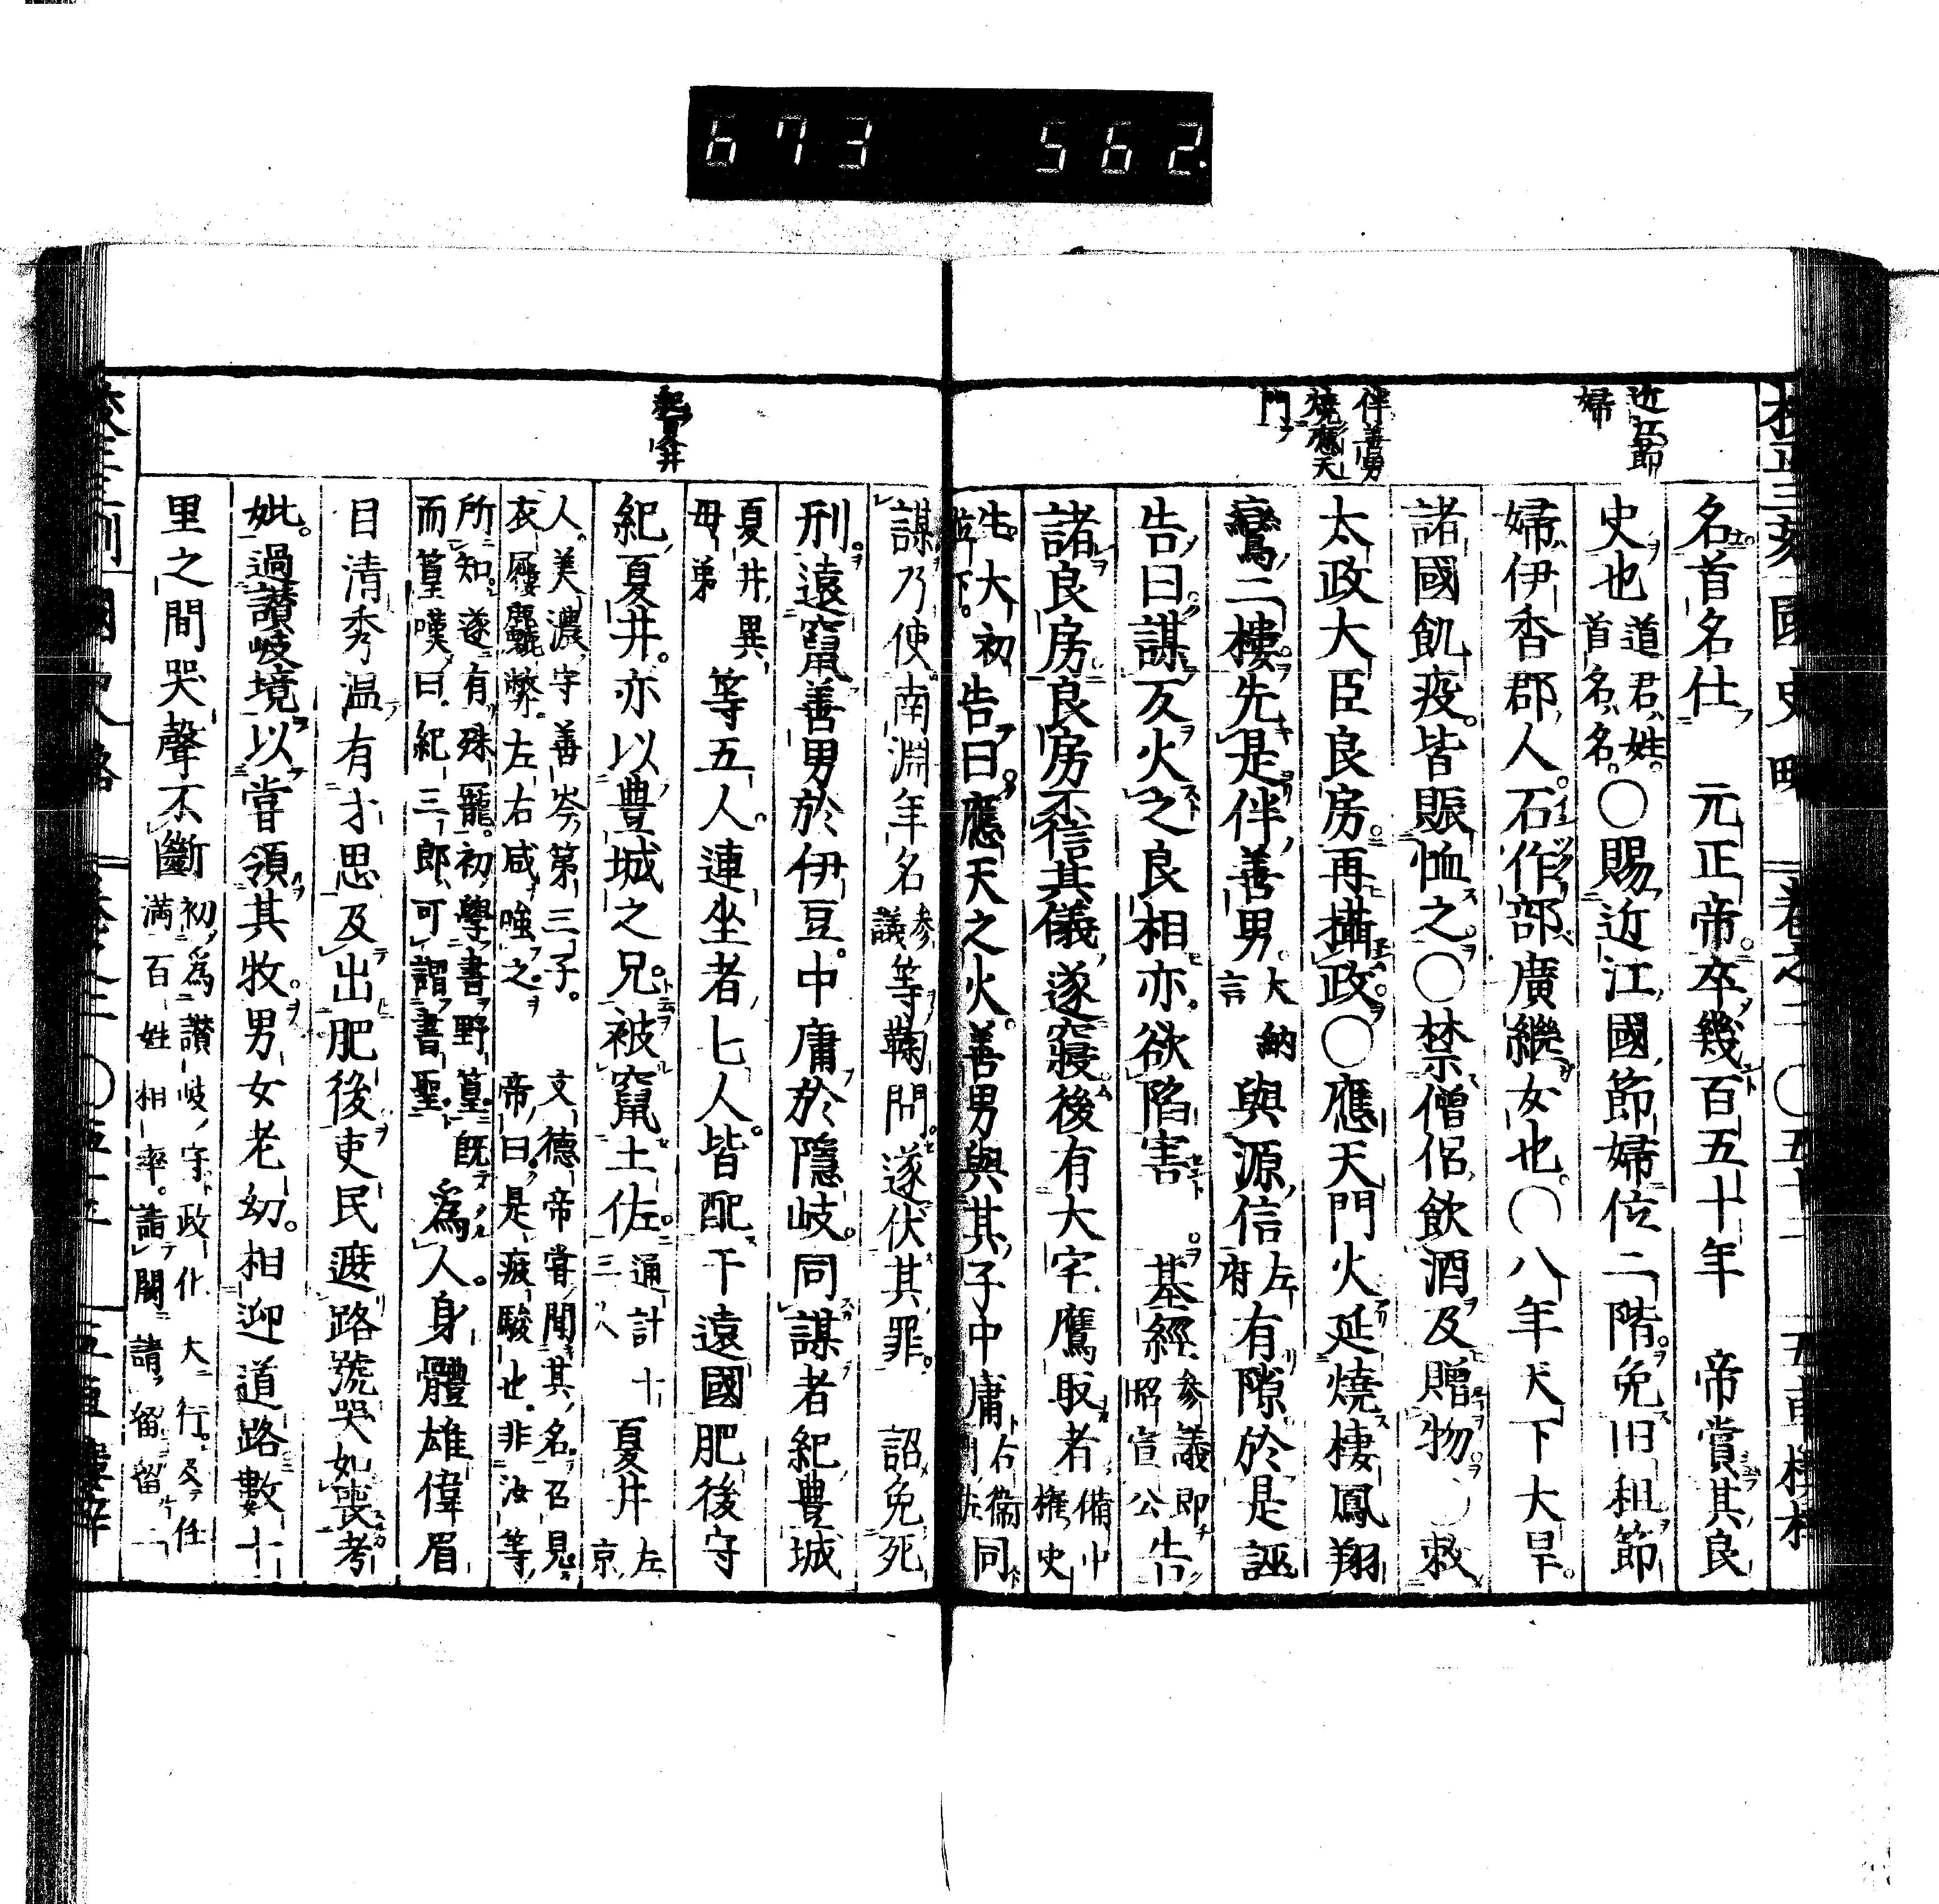 673 562
校正三刻國史略 卷之二 ○五十二 五車樓梓
近江節
婦
伴善男
燒應天
門
名首名仕 元正帝卒幾百五十年 帝賞其良
史也 道君姓 首名名 ○賜近江國節婦位二階免旧租節
婦伊香郡人石作部廣繼女也○八年天下大旱
諸國飢疫皆賑恤之○禁僧侶飲酒及贈物○敕
太政大臣良房再攝政○應天門火延燒棲鳳翔
鸞二樓先是伴善男 大納言 與源信 左府 有隙於是誣
告曰謀反火之良相亦欲陷害 基經 參議即昭宣公 告
諸良房良房不信其儀遂寢後有大宅鷹取者 備中權史
生大初位下 告曰應天之火善男與其子中庸 右衛門佐 同
謀乃使南淵年名 參議 等鞠問遂伏其罪 詔免死
刑遠竄善男於伊豆中庸於隱岐同謀者紀豊城
夏井異母弟 等五人連坐者七人皆配于遠國肥後守
紀夏井亦以豊城之兄被竄土佐 通計十三人 夏井 左京
人美濃守善岑第三子 文德帝嘗聞其名召見
衣屨麤弊左右咸嗤之 帝曰是疲駿也非汝等
所知遂有殊寵初學書野篁既
而篁嘆曰紀三郎可謂書聖 爲人身體雄偉眉
目清秀温有才思及出肥後吏民遮路號哭如喪考
妣過讃岐境以嘗領其牧男女老幼相迎道路數十
里之間哭聲不斷 初爲讃岐守政化大行及任
滿百姓相率詣闕請留留二
紀夏井